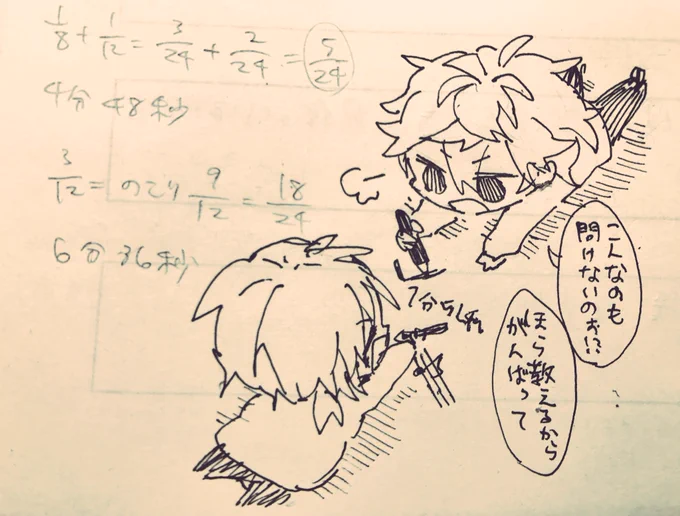 1/8 + 1/12 = 3/24 + 2/24 = 5/24
4分 48秒
3/12 = のこり 9/12 = 18/24
6分 36秒
こんなのも
解けないのぉ!?
ほら教えるから
がんばって